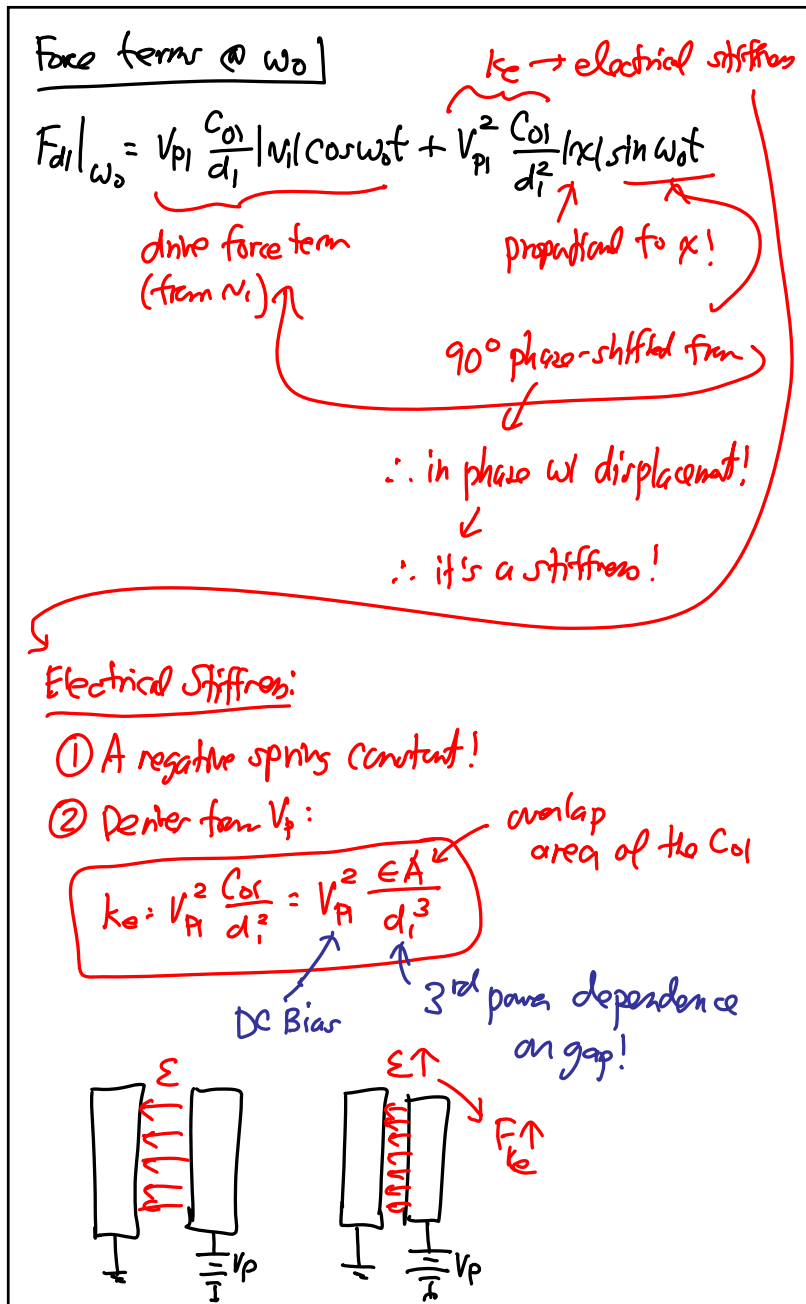 Force terms @ ω₀
kₑ → electrical stiffness
F_d1|_ω₀ = V_P1 C_o1/d₁ |v₁| cos ω₀t + V_P1² C_o1/d₁² |x| sin ω₀t
drive force term
(from v₁)
proportional to x!
90° phase-shifted from
∴ in phase w/ displacement!
∴ it's a stiffness!
Electrical Stiffness:
① A negative spring constant!
② Derives from V_P:
overlap
area of the C_o1
kₑ = V_P1² C_o1/d₁² = V_P1² ϵA/d₁³
DC Bias
3rd power dependence
on gap!
ε
ε↑
F_ke↑
V_P
V_P